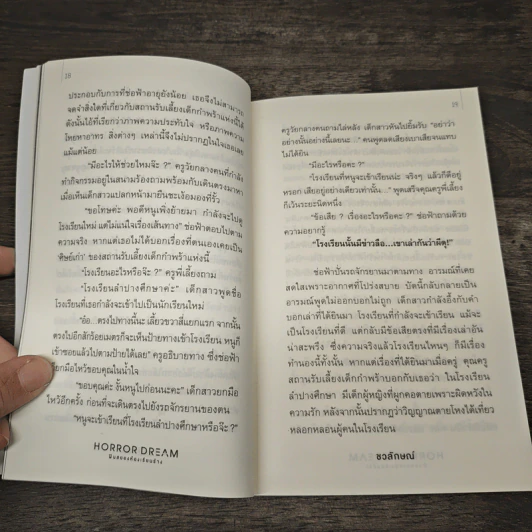 18
ประกอบกับการที่ช่อฟ้าอายุยังน้อย เธอจึงไม่สามารถ
จดจำสิ่งใดที่เกี่ยวกับสถานรับเลี้ยงเด็กกำพร้าแห่งนี้ได้
ดังนั้นไอ้ที่เรียกว่าภาพความประทับใจ หรือภาพความ
โหยหาอาทร สิ่งต่างๆ เหล่านี้จึงไม่ปรากฏในใจเธอเลย
แม้แต่น้อย
"มีอะไรให้ช่วยไหมจ๊ะ ?" ครูวัยกลางคนที่กำลัง
ทำกิจกรรมอยู่ในสนามร้องถามพร้อมกับเดินตรงมาหา
เมื่อเห็นเด็กสาวแปลกหน้ามายืนชะเง้อมองที่รั้ว
"ขอโทษค่ะ พอดีหนูเพิ่งย้ายมา กำลังจะไปดู
โรงเรียนใหม่ แต่ไม่แน่ใจเรื่องเส้นทาง" ช่อฟ้าตอบไปตาม
ความจริง หากแต่เธอไม่ได้บอกเรื่องที่ตนเองเคยเป็น
'ศิษย์เก่า' ของสถานรับเลี้ยงเด็กกำพร้าแห่งนี้
"โรงเรียนอะไรหรือจ๊ะ ?" ครูพี่เลี้ยงถาม
"โรงเรียนลำปางศึกษาค่ะ" เด็กสาวพูดชื่อ
โรงเรียนที่เธอกำลังจะเข้าไปเป็นนักเรียนใหม่
"อ้อ...ตรงไปทางนี้นะ เลี้ยวขวาสี่แยกแรก จากนั้น
ตรงไปอีกสักร้อยเมตรก็จะเห็นป้ายทางเข้าโรงเรียน หนูก็
เข้าซอยแล้วไปตามป้ายได้เลย" ครูอธิบายทาง ซึ่งช่อฟ้า
ยกมือไหว้ขอบคุณในน้ำใจ
"ขอบคุณค่ะ งั้นหนูไปก่อนนะคะ" เด็กสาวยกมือ
ไหว้อีกครั้ง ก่อนที่จะเดินตรงไปยังรถจักรยานของตน
"หนูจะเข้าเรียนที่โรงเรียนลำปางศึกษาหรือจ๊ะ ?"
HORROR DREAM
19
ครูวัยกลางคนถามไล่หลัง เด็กสาวหันไปยิ้มรับ "อย่าว่า
อย่างนั้นอย่างนี้เลยนะ ..." คนพูดลดเสียงเบาเสียจนแทบ
ไม่ได้ยิน
"มีอะไรหรือคะ ?"
"โรงเรียนที่หนูจะเข้าเรียนน่ะ จริงๆ แล้วก็ดีอยู่
หรอก เสียอยู่อย่างเดียวเท่านั้น..." พูดเสร็จคุณครูพี่เลี้ยง
ก็เว้นระยะนิดหนึ่ง
"ข้อเสีย ? เรื่องอะไรหรือคะ ?" ช่อฟ้าถามด้วย
ความอยากรู้
"โรงเรียนนั้นมีข่าวลือ...เขาเล่ากันว่าผีดุ!"
ช่อฟ้าปั่นรถจักรยานมาตามทาง อารมณ์ที่เคย
สดใสเพราะอากาศที่โปร่งสบาย บัดนี้กลับกลายเป็น
อารมณ์พูดไม่ออกบอกไม่ถูก เด็กสาวกำลังอึ้งกับคำ
บอกเล่าที่ได้ยินมา โรงเรียนที่กำลังจะเข้าเรียน แม้จะ
เป็นโรงเรียนที่ดี แต่กลับมีข้อเสียตรงที่มีเรื่องเล่าอัน
น่าสะพรึง ซึ่งความจริงแล้วโรงเรียนไหนๆ ก็มีเรื่อง
ทำนองนี้ทั้งนั้น หากแต่เรื่องที่ได้ยินมาเมื่อครู่ คุณครู
สถานรับเลี้ยงเด็กกำพร้าบอกกับเธอว่า ในโรงเรียน
ลำปางศึกษา มีเด็กผู้หญิงที่ผูกคอตายเพราะผิดหวังใน
ความรัก หลังจากนั้นปรากฏว่าวิญญาณตายโหงได้เที่ยว
หลอกหลอนผู้คนในโรงเรียน
ชวลักษณ์